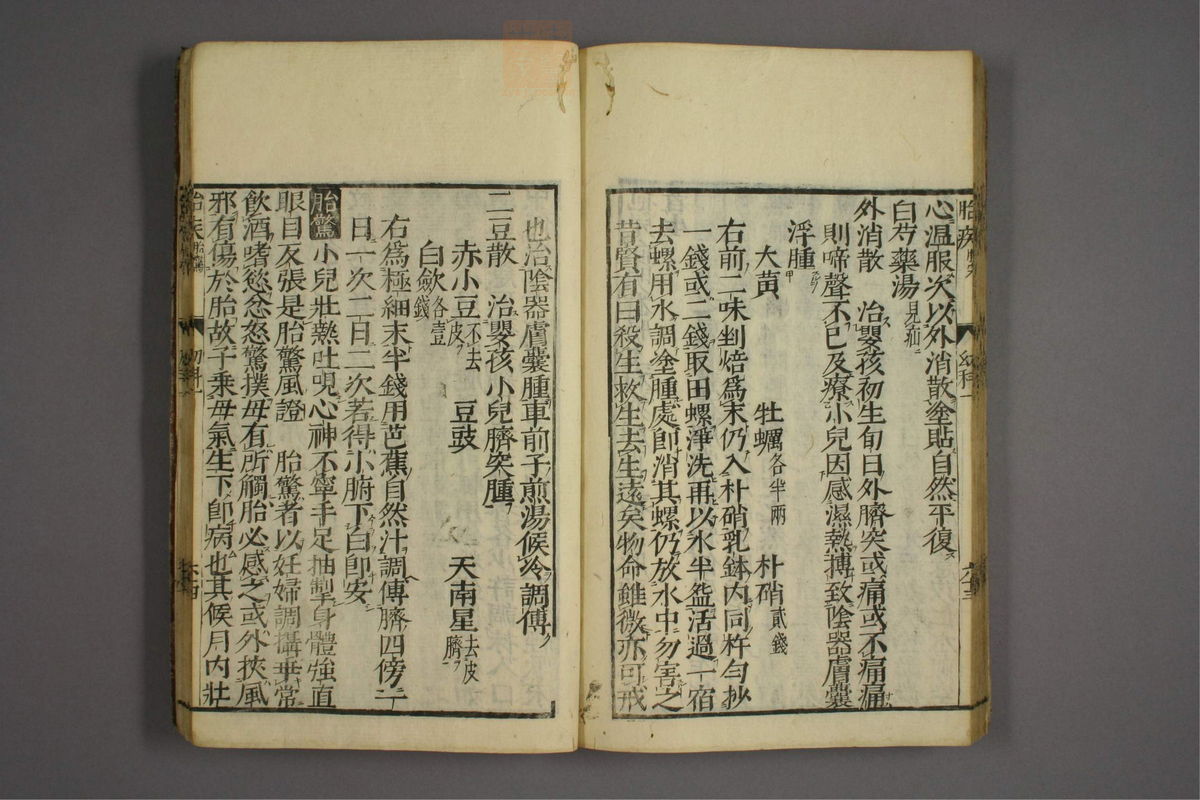 心溫服次以外消散塗貼自然平復
白芍藥湯見疝二
外消散　治嬰孩初生旬日外臍突或痛或不痛痛
則啼聲不已及療小兒因感濕熱搏致陰器膚囊
浮腫
大黃　牡蠣各半兩　朴硝貳錢
右前二味剉焙爲末仍入朴硝乳鉢內同杵勻抄
一錢或二錢取田螺淨洗再以水半盌活過一宿
去螺用水調塗腫處卽消其螺仍放水中勿害之
昔賢有曰殺生救生去生遠矣物命雖微亦可戒
也治陰器膚囊腫車前子煎湯候冷調傅
二豆散　治嬰孩小兒臍突腫
赤小豆不去皮　豆豉　天南星去皮臍
白斂各壹錢
右爲極細末半錢用芭蕉自然汁調傅臍四傍一
日一次二日二次若得小腑下白卽安
胎驚　小兒壯熱吐哯心神不寧手足抽掣身體強直
眼目反張是胎驚風證　胎驚者以妊婦調攝乖常
飲酒嗜慾忿怒驚撲母有所觸胎必感之或外挾風
邪有傷於胎故子乘母氣生下卽病也其候月內壯